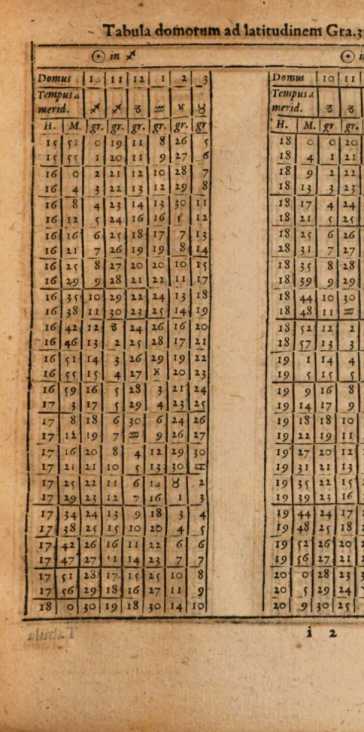 Tabula domorum ad latitudinem Gra.3
☉ in ♐
Domus 10 11 12 1 2 3
Tempus a merid. ♐ ♐ ♑ ♒ ♉
H. M. gr. gr. gr. gr. gr. gr
15 51 0 19 11 8 26 5
15 55 1 20 11 9 27 6
16 0 2 21 12 10 28 7
16 4 3 22 13 12 29 8
16 8 4 23 14 13 30 11
16 12 5 24 16 16 12
16 16 6 25 18 17 7 13
16 21 7 26 19 19 8 14
16 25 8 27 20 20 10 15
16 29 9 28 21 22 11 17
16 35 10 29 22 24 13 18
16 38 11 30 23 25 14 19
16 42 12 ♑ 24 26 16 20
16 46 13 2 25 28 17 21
16 51 14 3 26 29 19 22
16 55 15 4 27 ♓ 20 23
16 59 16 5 28 3 21 24
17 3 17 5 29 4 23 25
17 8 18 6 30 6 24 26
17 12 19 7 ♒ 9 26 27
17 16 20 8 4 12 29 30
17 21 21 10 5 13 30 ♊
17 25 22 11 6 14 ♉ 2
17 29 23 12 7 16 1 3
17 34 24 13 9 18 3 4
17 38 25 15 10 20 4 5
17 42 26 16 11 22 6 6
17 47 27 14 23 7 7
17 51 28 17 15 25 10 8
17 56 29 18 16 27 11 9
18 0 30 19 18 30 14 10
☉ i
Domus 10 11
Tempus a merid. ♑ ♑
H. M. gr gr.
18 0 0 20
18 4 1 22
18 9 2 22
18 13 3 23
18 17 4 24
18 21 5 25
18 25 6 26
18 31 7 27
18 35 8 28
18 39 9 29
18 44 10 30
18 48 11 ♒
18 52 12 2
18 57 13 3
19 1 14 4
19 5 15 5
19 9 16 8
19 14 17 9
19 18 18 10
19 22 19 11
19 27 20 12
19 31 21 13
19 35 22 15
19 39 23 16
19 44 24 17
19 48 25 18
19 52 26 20
19 56 27 21
20 0 28 23
20 5 29 24
20 9 30 25
i 2